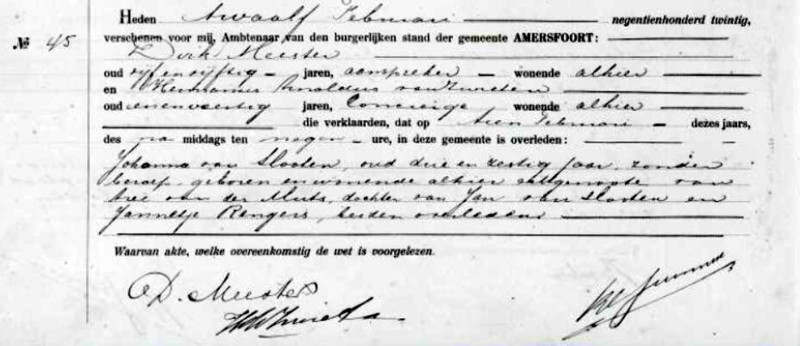 Heden Twaalf Februari negentienhonderd twintig,
№ 45 verschenen voor mij, Ambtenaar van den burgerlijken stand der gemeente AMERSFOORT:
Dirk Meester
oud vijf en vijftig jaren, aanspreker wonende alhier
en Hermanus Arnoldus van Zwieten
oud eenenveertig jaren, Concierge wonende alhier
die verklaarden, dat op tien Februari dezes jaars,
des na middags ten negen ure, in deze gemeente is overleden:
Johanna van Slooten, oud drie en zestig jaar, zonder
beroep, geboren en wonende alhier echtgenoote van
Aree van der Meuts, dochter van Jan van Slooten en
Jannetje Rengers, beiden overleden
Waarvan akte, welke overeenkomstig de wet is voorgelezen.
D. Meester
HAvZwieten